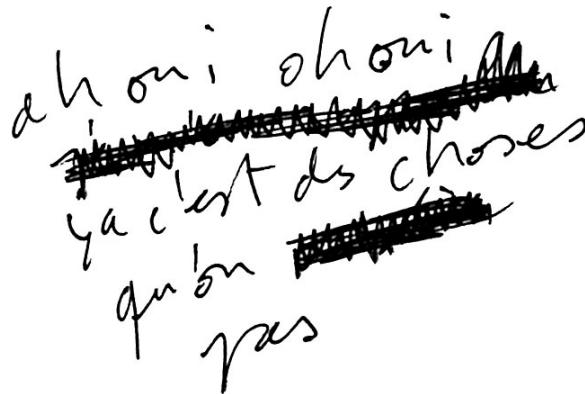 ah oui ohoui
ça c'est des choses
qu'on
pas